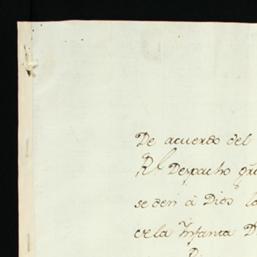 De acuerdo del
Rl Despacho q
se den à Dios la
de la Infanta D